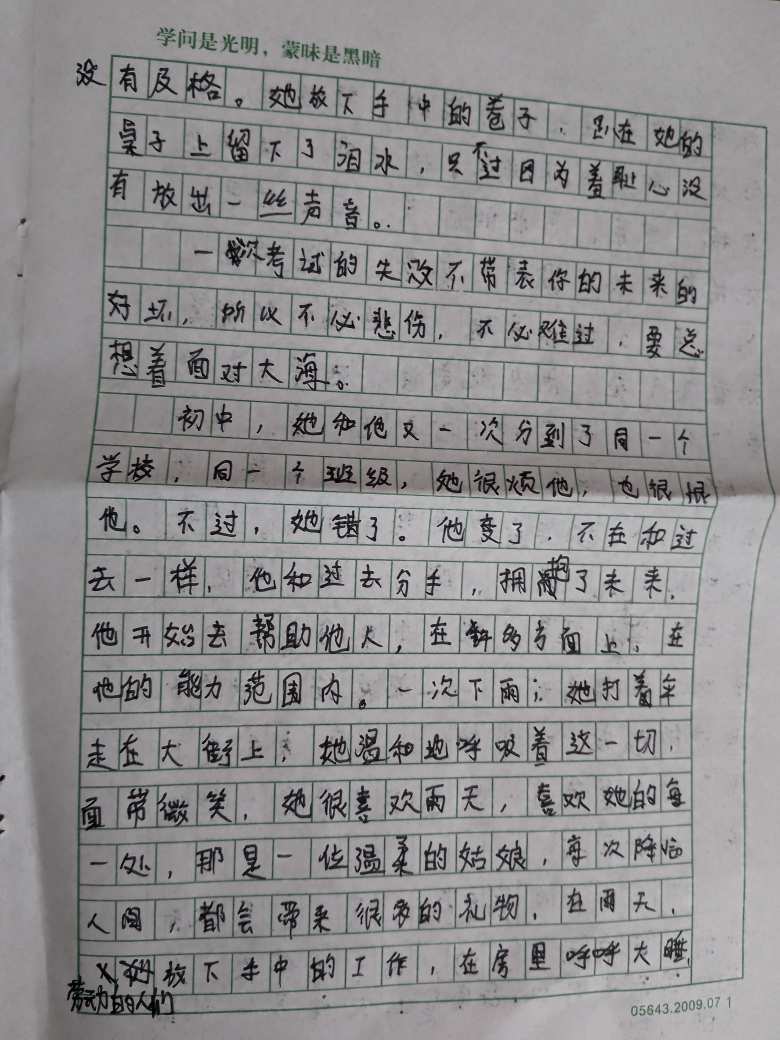 学问是光明，蒙昧是黑暗
没有及格。她放下手中的卷子，趴在她的
桌子上留下了泪水，只不过因为羞耻心没
有放出一丝声音。
一次考试的失败不带表你的未来的
好坏，所以不必悲伤，不必难过，要总
想着面对大海。
初中，她和他又一次分到了同一个
学校，同一个班级，她很烦他，也很恨
他。不过，她错了。他变了，不在和过
去一样，他和过去分手，拥抱了未来，
他开始去帮助他人，在许多方面上，在
他的能力范围内。一次下雨；她打着伞
走在大街上；她温和地呼吸着这一切，
面带微笑，她很喜欢雨天，喜欢她的每
一处，那是一位温柔的姑娘，每次降临
人间，都会带来很多的礼物，在雨天，
劳动力的人们放下手中的工作，在房里呼呼大睡，
05643.2009.07 1